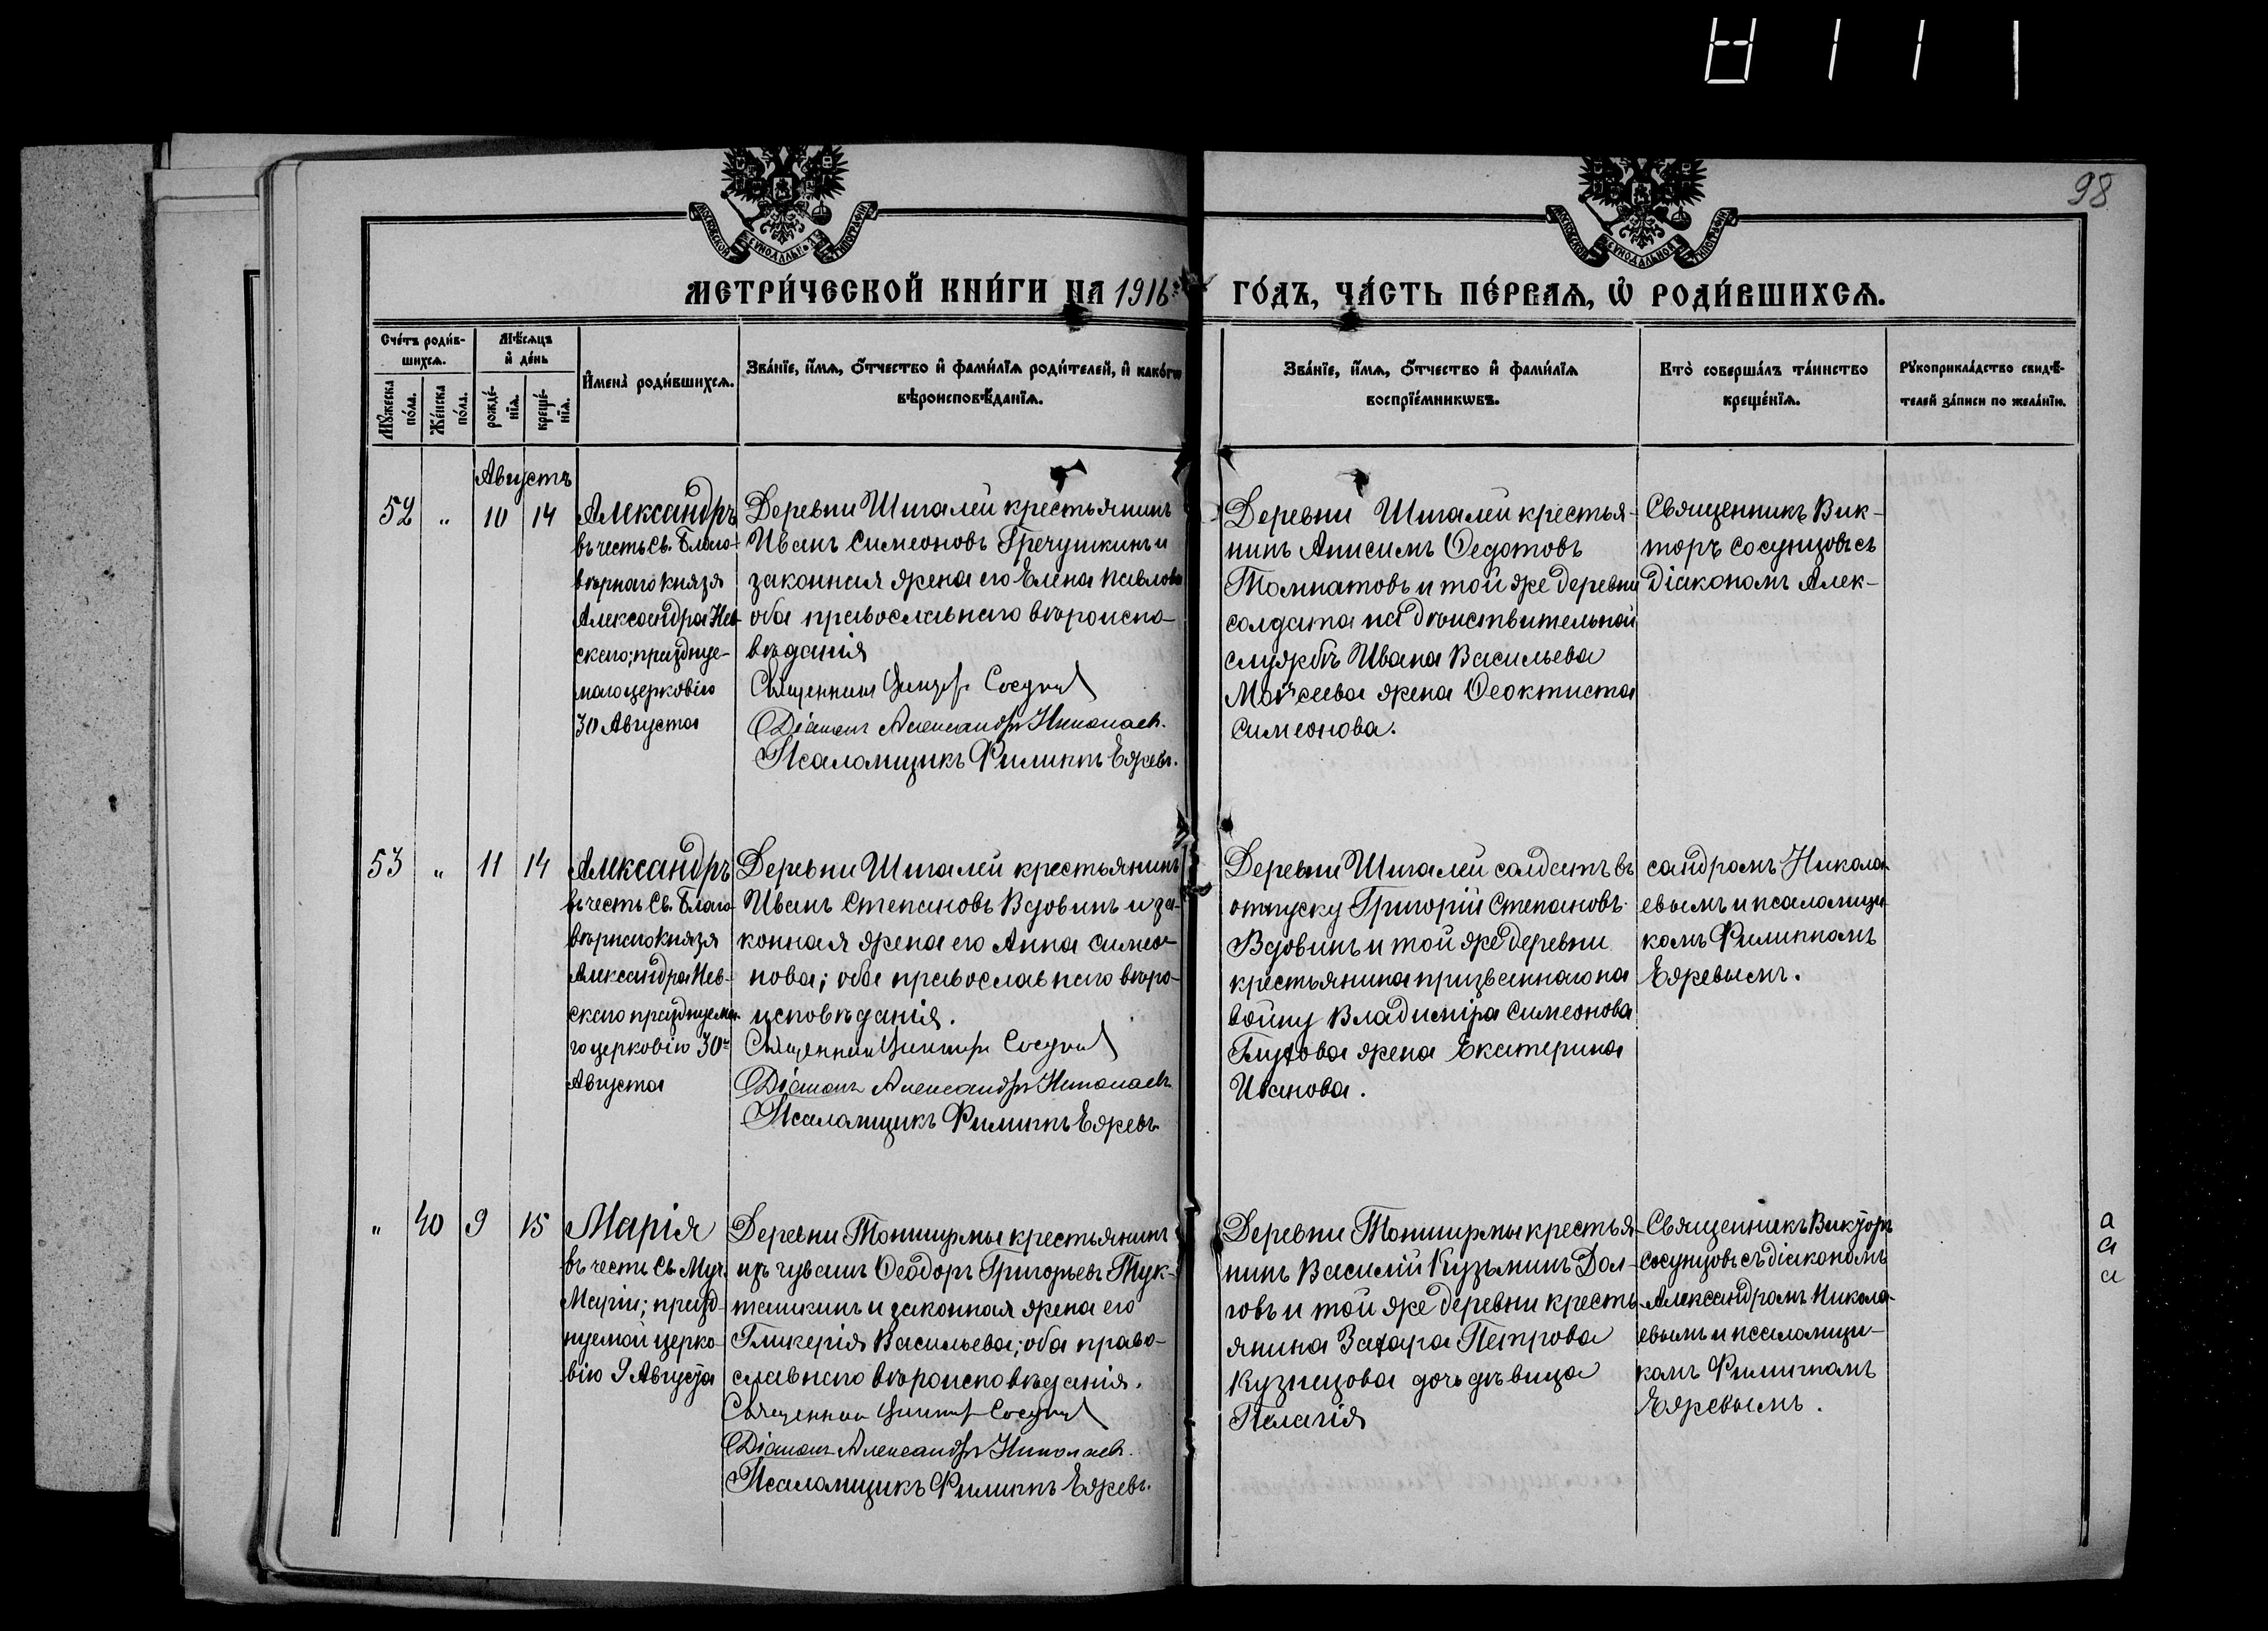 98
МОСКОВСКОЙ СѴНОДАЛЬНОЙ ТИПОГРАФІИ
МОСКОВСКОЙ СѴНОДАЛЬНОЙ ТИПОГРАФІИ
МЕТРИ́ЧЕСКОЙ КНИ́ГИ НА 1916 й
ГО́ДЪ, ЧА́СТЬ ПЕ́РВАѦ, Ѽ РОДИ́ВШИХСѦ.
Сче́тъ роди́в-
шихсѧ.
Мꙋ́жеска
по́ла.
Же́нска
по́ла.
Мѣ́сѧцъ
и҆ де́нь
рожде́-
нїѧ.
креще́-
нїѧ.
И҆мена̀ роди́вшихсѧ.
Зва́нїе, и҆́мѧ, ѻ҆́тчество и҆ фами́лїѧ роди́телей, и҆ како́гѡ
вѣроисповѣ́данїѧ.
Зва́нїе, и҆́мѧ, ѻ҆́тчество и҆ фами́лїѧ
воспрїе́мникѡвъ.
Кто̀ соверша́лъ та́инство
креще́нїѧ.
Рꙋкоприкла́дство свидѣ́-
телей за́писи по жела́нїю.
Августъ
52 " 10 14
Александръ
въ честь Св. Благо-
вѣрнаго князя
Александра Нев-
скаго; праздкуе-
маго церковію
30 Августа
Деревни Шигалей крестьянинъ
Иванъ Симеоновъ Гречушкинъ и
законная жена его Елена Павлова
оба православнаго вѣроиспо-
вѣданія
Священникъ Викторъ Сосунцовъ
Діаконъ Александръ Николаевъ.
Псаломщикъ Филиппъ Ежевъ.
Деревни Шигалей крестья-
нинъ Анисимъ Ѳедотовъ
Толпатовъ и той же деревни
солдата на дѣйствительной
службѣ Ивана Васильева
Мойсеева жена Ѳеоктиста
Симеонова.
Священникъ Вик-
торъ Сосунцовъ съ
діакономъ Алек-
53 " 11 14
Александръ
въ честь Св. Благо-
вѣрнаго князя
Александра Нев-
скаго празднуема-
го церковію 30го
Августа
Деревни Шигалей крестьянинъ
Иванъ Степановъ Вдовинъ и за-
конная жена его Анна Симео-
нова; оба православнаго вѣро-
исповѣданія.
Священникъ Викторъ Сосунцовъ
Діаконъ Александръ Николаевъ
Псаломщикъ Филиппъ Ежевъ
Деревни Шигалей солдатъ въ
отпуску Григорій Степановъ
Вдовинъ и той же деревни
крестьянина призваннаго на
войну Владиміра Симеонова
Глухова жена Екатерина
Иванова.
сандромъ Никола-
евымъ и псаломщи-
комъ Филиппомъ
Ежевымъ.
" 40 9 15
Марія
въ честь Св. Муч.
Маріи; празд-
нуемой церко-
вію 9 Августа
Деревни Тонширмы крестьянинъ
изъ чувашъ Ѳеодоръ Григорьевъ Тук-
ташкинъ и законная жена его
Гликерія Васильева; оба право-
славнаго вѣроисповѣданія.
Священникъ Викторъ Сосунцовъ
Діаконъ Александръ Николаевъ.
Псаломщикъ Филиппъ Ежевъ.
Деревни Тонширмы крестья-
нинъ Василій Кузьминъ Дол-
говъ и той же деревни кресть-
янина Захара Петрова
Кузнецова дочь дѣвица
Пелагія
Священникъ Викторъ
Сосунцовъ съ діакономъ
Александромъ Никола-
евымъ и псаломщи-
комъ Филиппомъ
Ежевымъ.
а
а
а